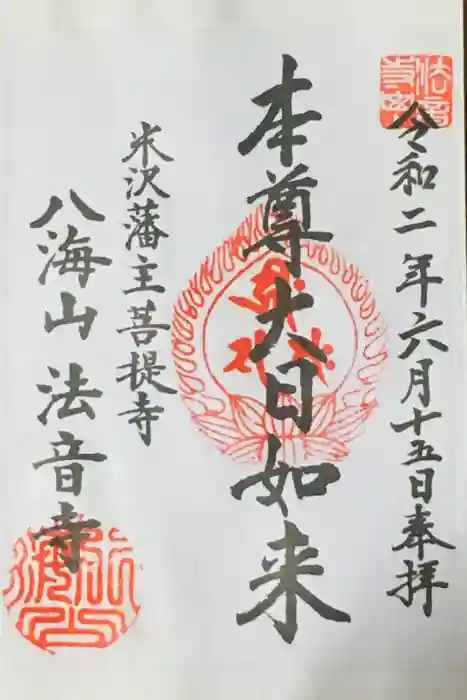 令和二年六月十五日奉拝
本尊大日如来
米沢藩主菩提寺
八海山法音寺